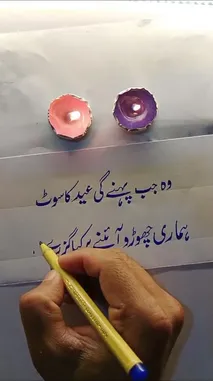 وہ جب پہنے گی عید کا سوٹ
ہماری چھوڑو آئنے پر کیا گزرے